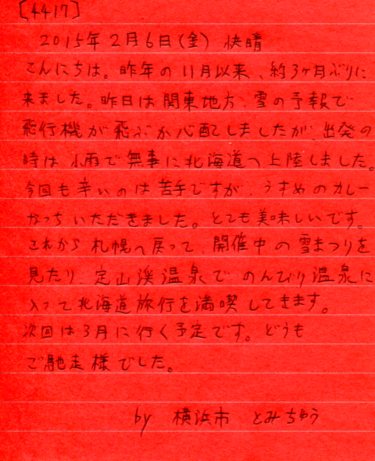 [4417]
2015年2月6日(金) 快晴
こんにちは。昨年の11月以来、約3ヶ月ぶりに
来ました。昨日は関東地方、雪の予報で
飛行機が飛ぶか心配しましたが、出発の
時は小雨で無事に北海道へ上陸しました。
今回も辛いのは苦手ですが、うすめのカレー
がっちいただきました。とても美味しいです。
これから札幌へ戻って 開催中の雪まつりを
見たり、定山渓温泉でのんびり温泉に
入って北海道旅行を満喫してきます。
次回は3月に行く予定です。どうも
ご馳走様でした。
by 横浜市 とみちゅう